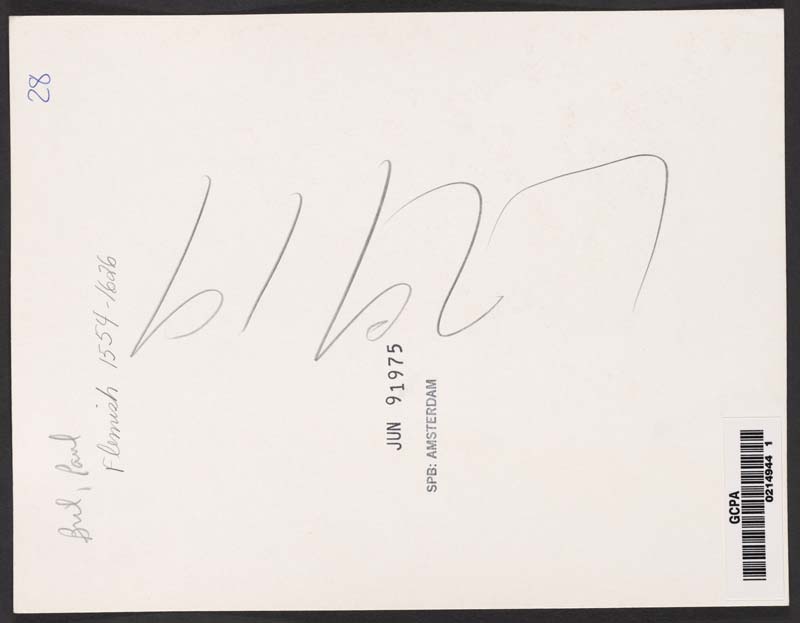 28
Bril, Paul
Flemish 1554-1626
61627
JUN 9 1975
SPB: AMSTERDAM
GCPA
0214944 1